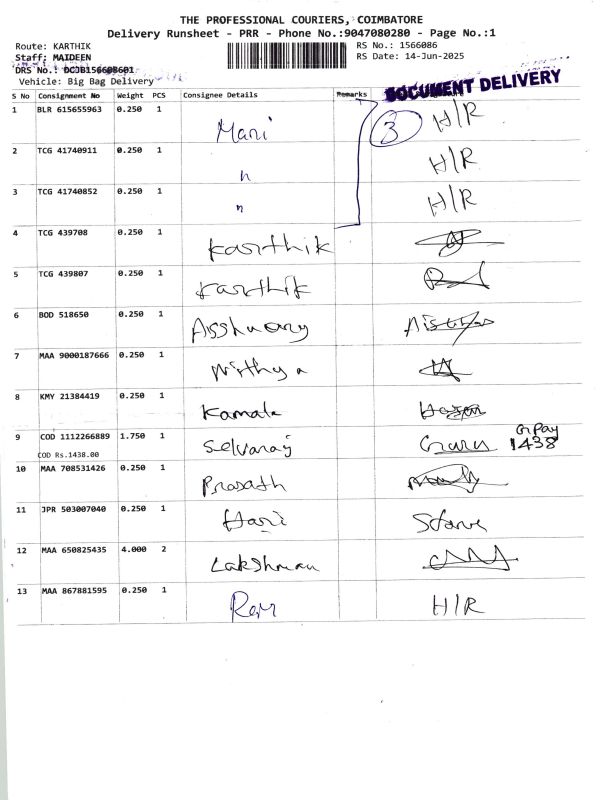 THE PROFESSIONAL COURIERS, COIMBATORE
Delivery Runsheet - PRR - Phone No.:9047080280 - Page No.:1
Route: KARTHIK
RS No.: 1566086
Staff: MAIDEEN
RS Date: 14-Jun-2025
DRS No.:
Vehicle: Big Bag Delivery
DOCUMENT DELIVERY
S No Consignment No Weight PCS Consignee Details Remarks
1 BLR 615655963 0.250 1 Mani 3 H/R
2 TCG 41740911 0.250 1 " H/R
3 TCG 41740852 0.250 1 " H/R
4 TCG 439708 0.250 1 Karthik
5 TCG 439807 0.250 1 Karthik
6 BOD 518650 0.250 1
7 MAA 9000187666 0.250 1 Nithya
8 KMY 21384419 0.250 1 Kamala
9 COD 1112266889 1.750 1 Selvaraj Guru G.Pay 1438
COD Rs.1438.00
10 MAA 708531426 0.250 1 Prasath
11 JPR 503007040 0.250 1 Hari
12 MAA 650825435 4.000 2 Lakshman
13 MAA 867881595 0.250 1 Ram H/R